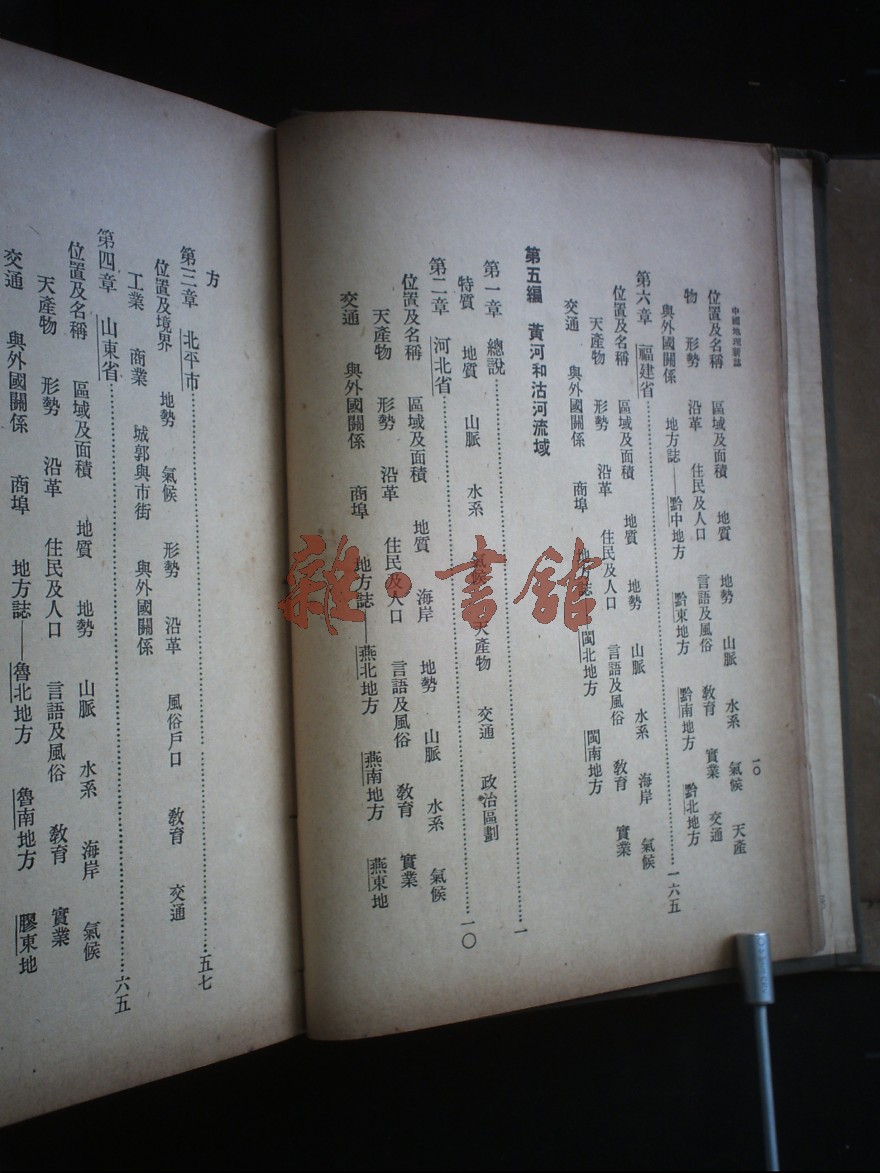 中國地理新誌
一〇
位置及名稱 區域及面積 地質 地勢 山脈 水系 氣候 天產
物 形勢 沿革 住民及人口 言語及風俗 教育 實業 交通
與外國關係 地方誌——黔中地方 黔東地方 黔南地方 黔北地方
第六章 福建省……一六五
位置及名稱 區域及面積 地質 地勢 山脈 水系 海岸 氣候
天產物 形勢 沿革 住民及人口 言語及風俗 教育 實業
交通 與外國關係 商埠 地方誌——閩北地方 閩南地方
第五編 黃河和沽河流域
第一章 總說……一
特質 地質 山脈 水系 氣候 天產物 交通 政治區劃
第二章 河北省……一〇
位置及名稱 區域及面積 地質 海岸 地勢 山脈 水系 氣候
天產物 形勢 沿革 住民及人口 言語及風俗 教育 實業
交通 與外國關係 商埠 地方誌——燕北地方 燕南地方 燕東地
方
第三章 北平市……五七
位置及境界 地勢 氣候 形勢 沿革 風俗戶口 教育 交通
工業 商業 城郭與市街 與外國關係
第四章 山東省……六五
位置及名稱 區域及面積 地質 地勢 山脈 水系 海岸 氣候
天產物 形勢 沿革 住民及人口 言語及風俗 教育 實業
交通 與外國關係 商埠 地方誌——魯北地方 魯南地方 膠東地
雜·書舘